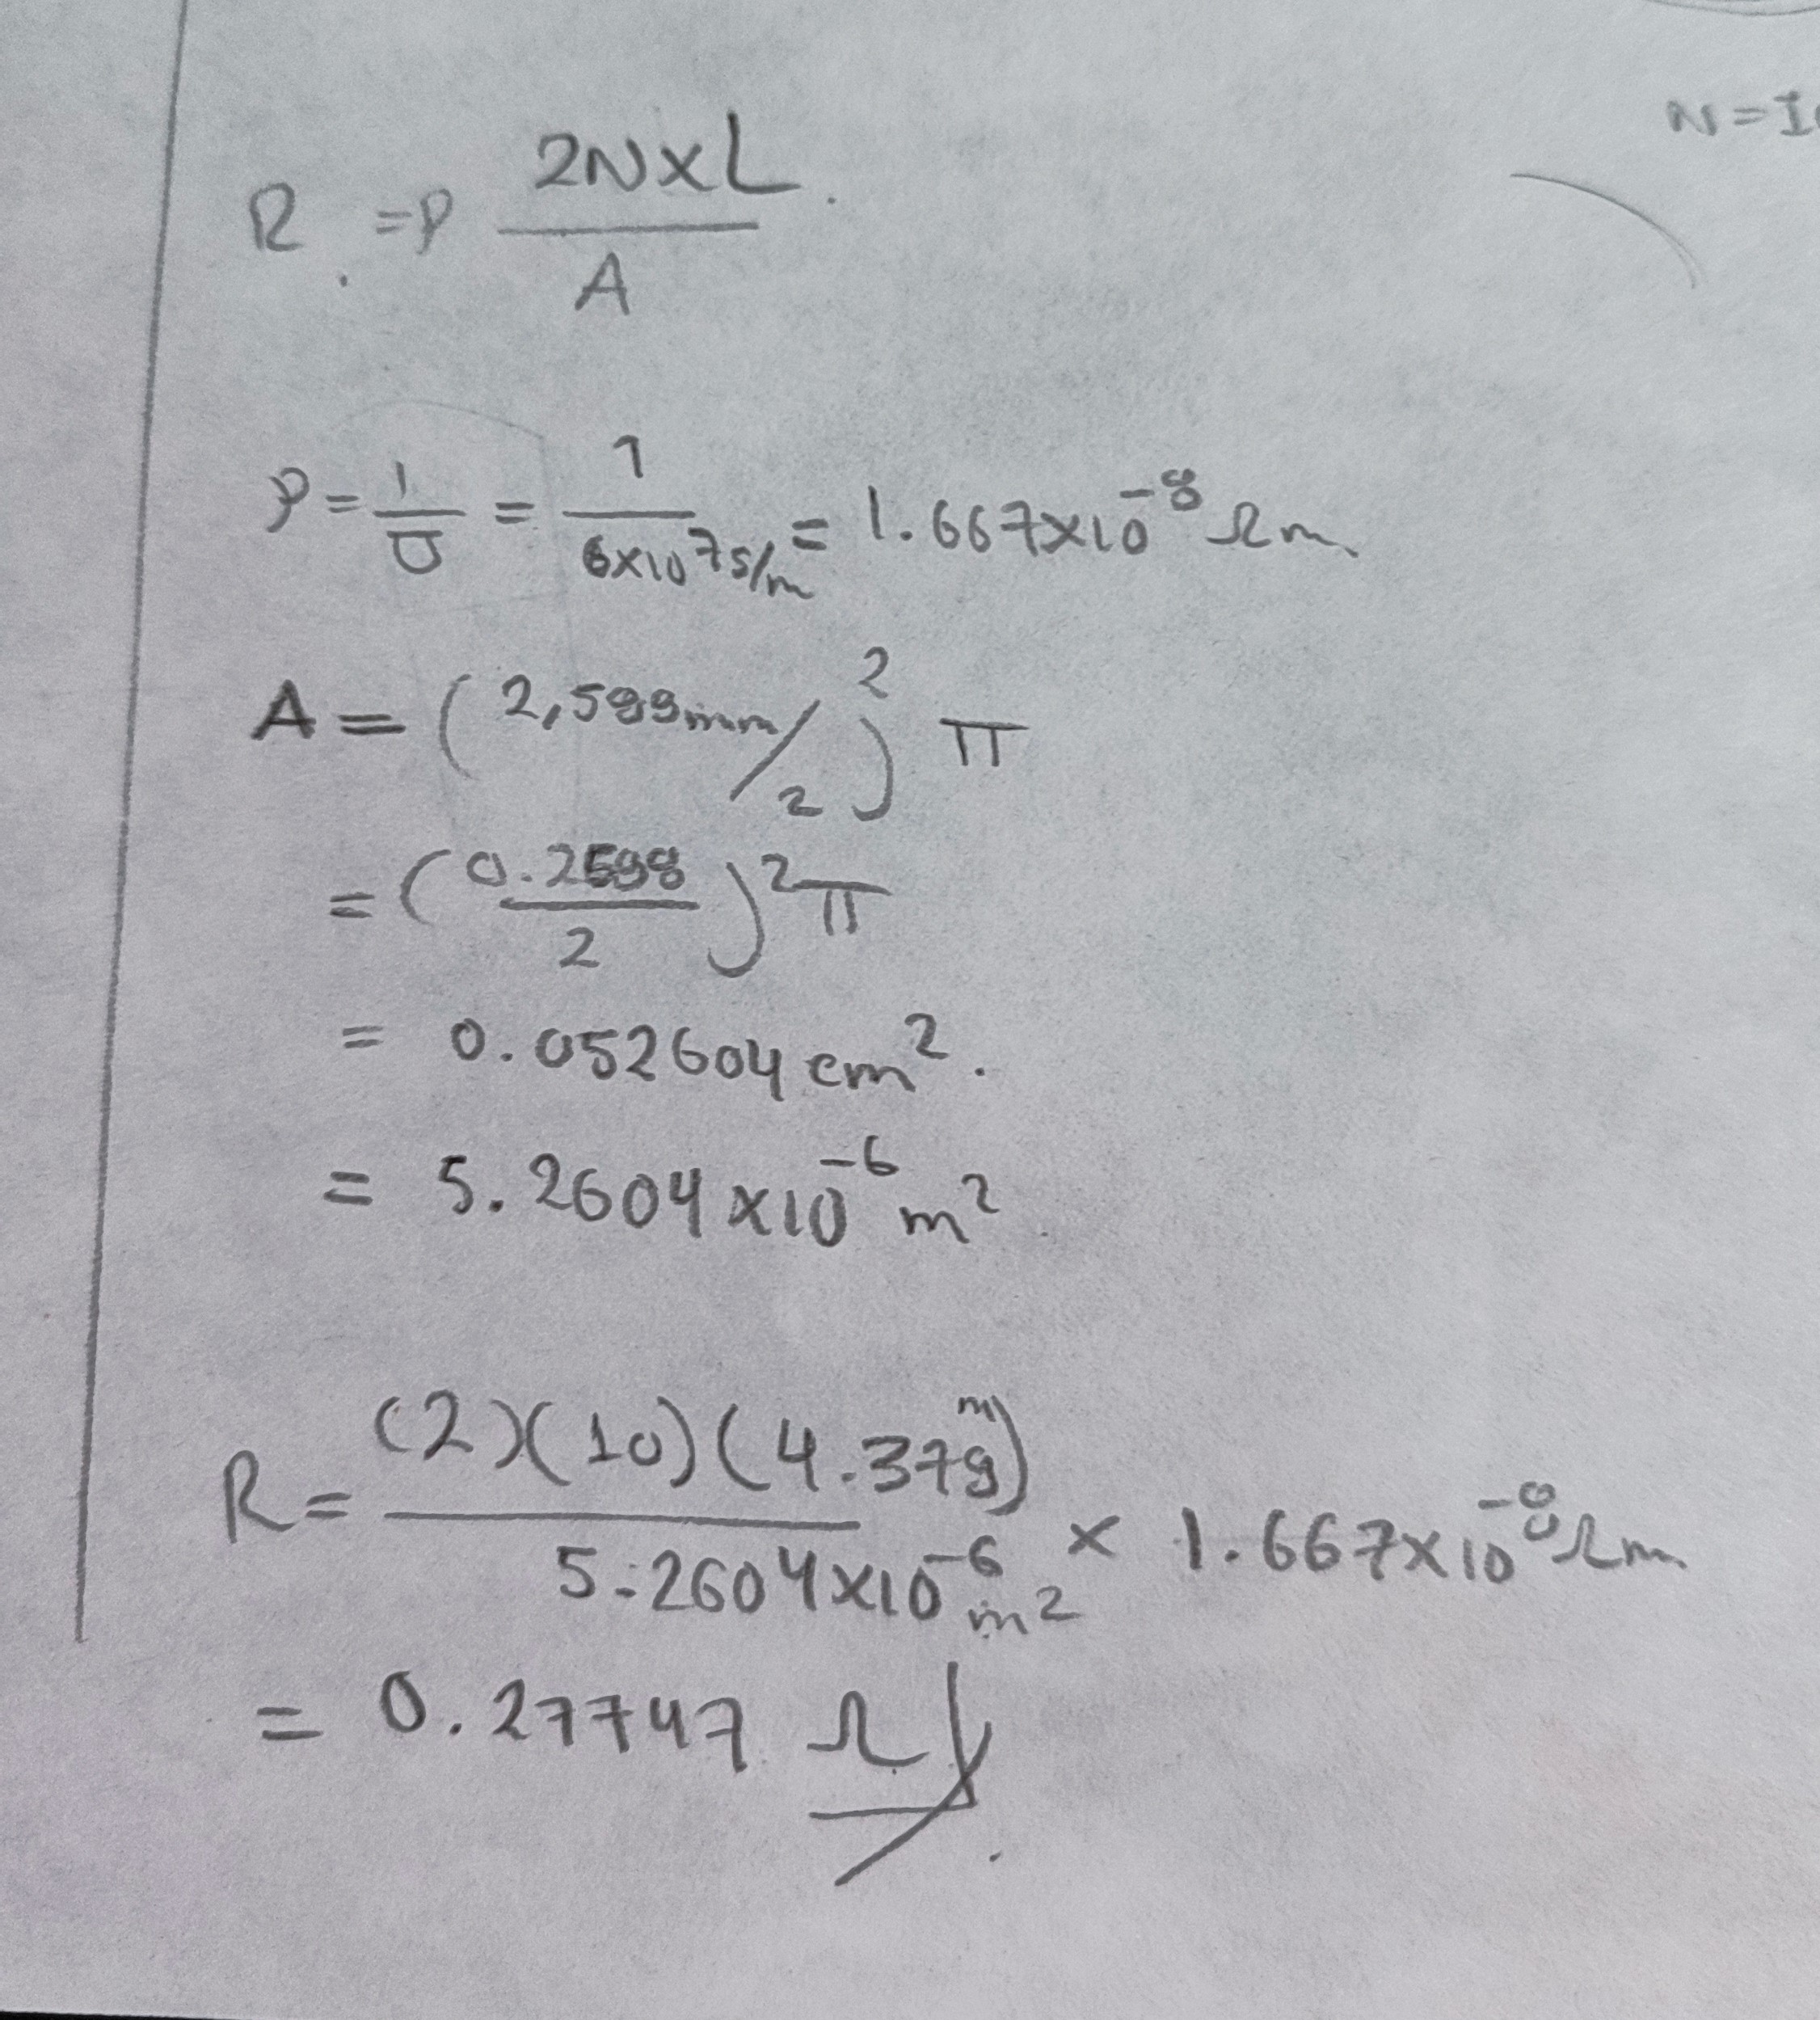 N=10
R = ρ 2N×L / A
ρ = 1/σ = 1 / 6×10^7 S/m = 1.667×10^-8 Ωm.
A = (2,588mm/2)^2 π
= (0.2588/2)^2 π
= 0.052604 cm^2.
= 5.2604×10^-6 m^2
R = (2)(10)(4.379m) / 5.2604×10^-6 m^2 × 1.667×10^-8 Ωm
= 0.27747 Ω